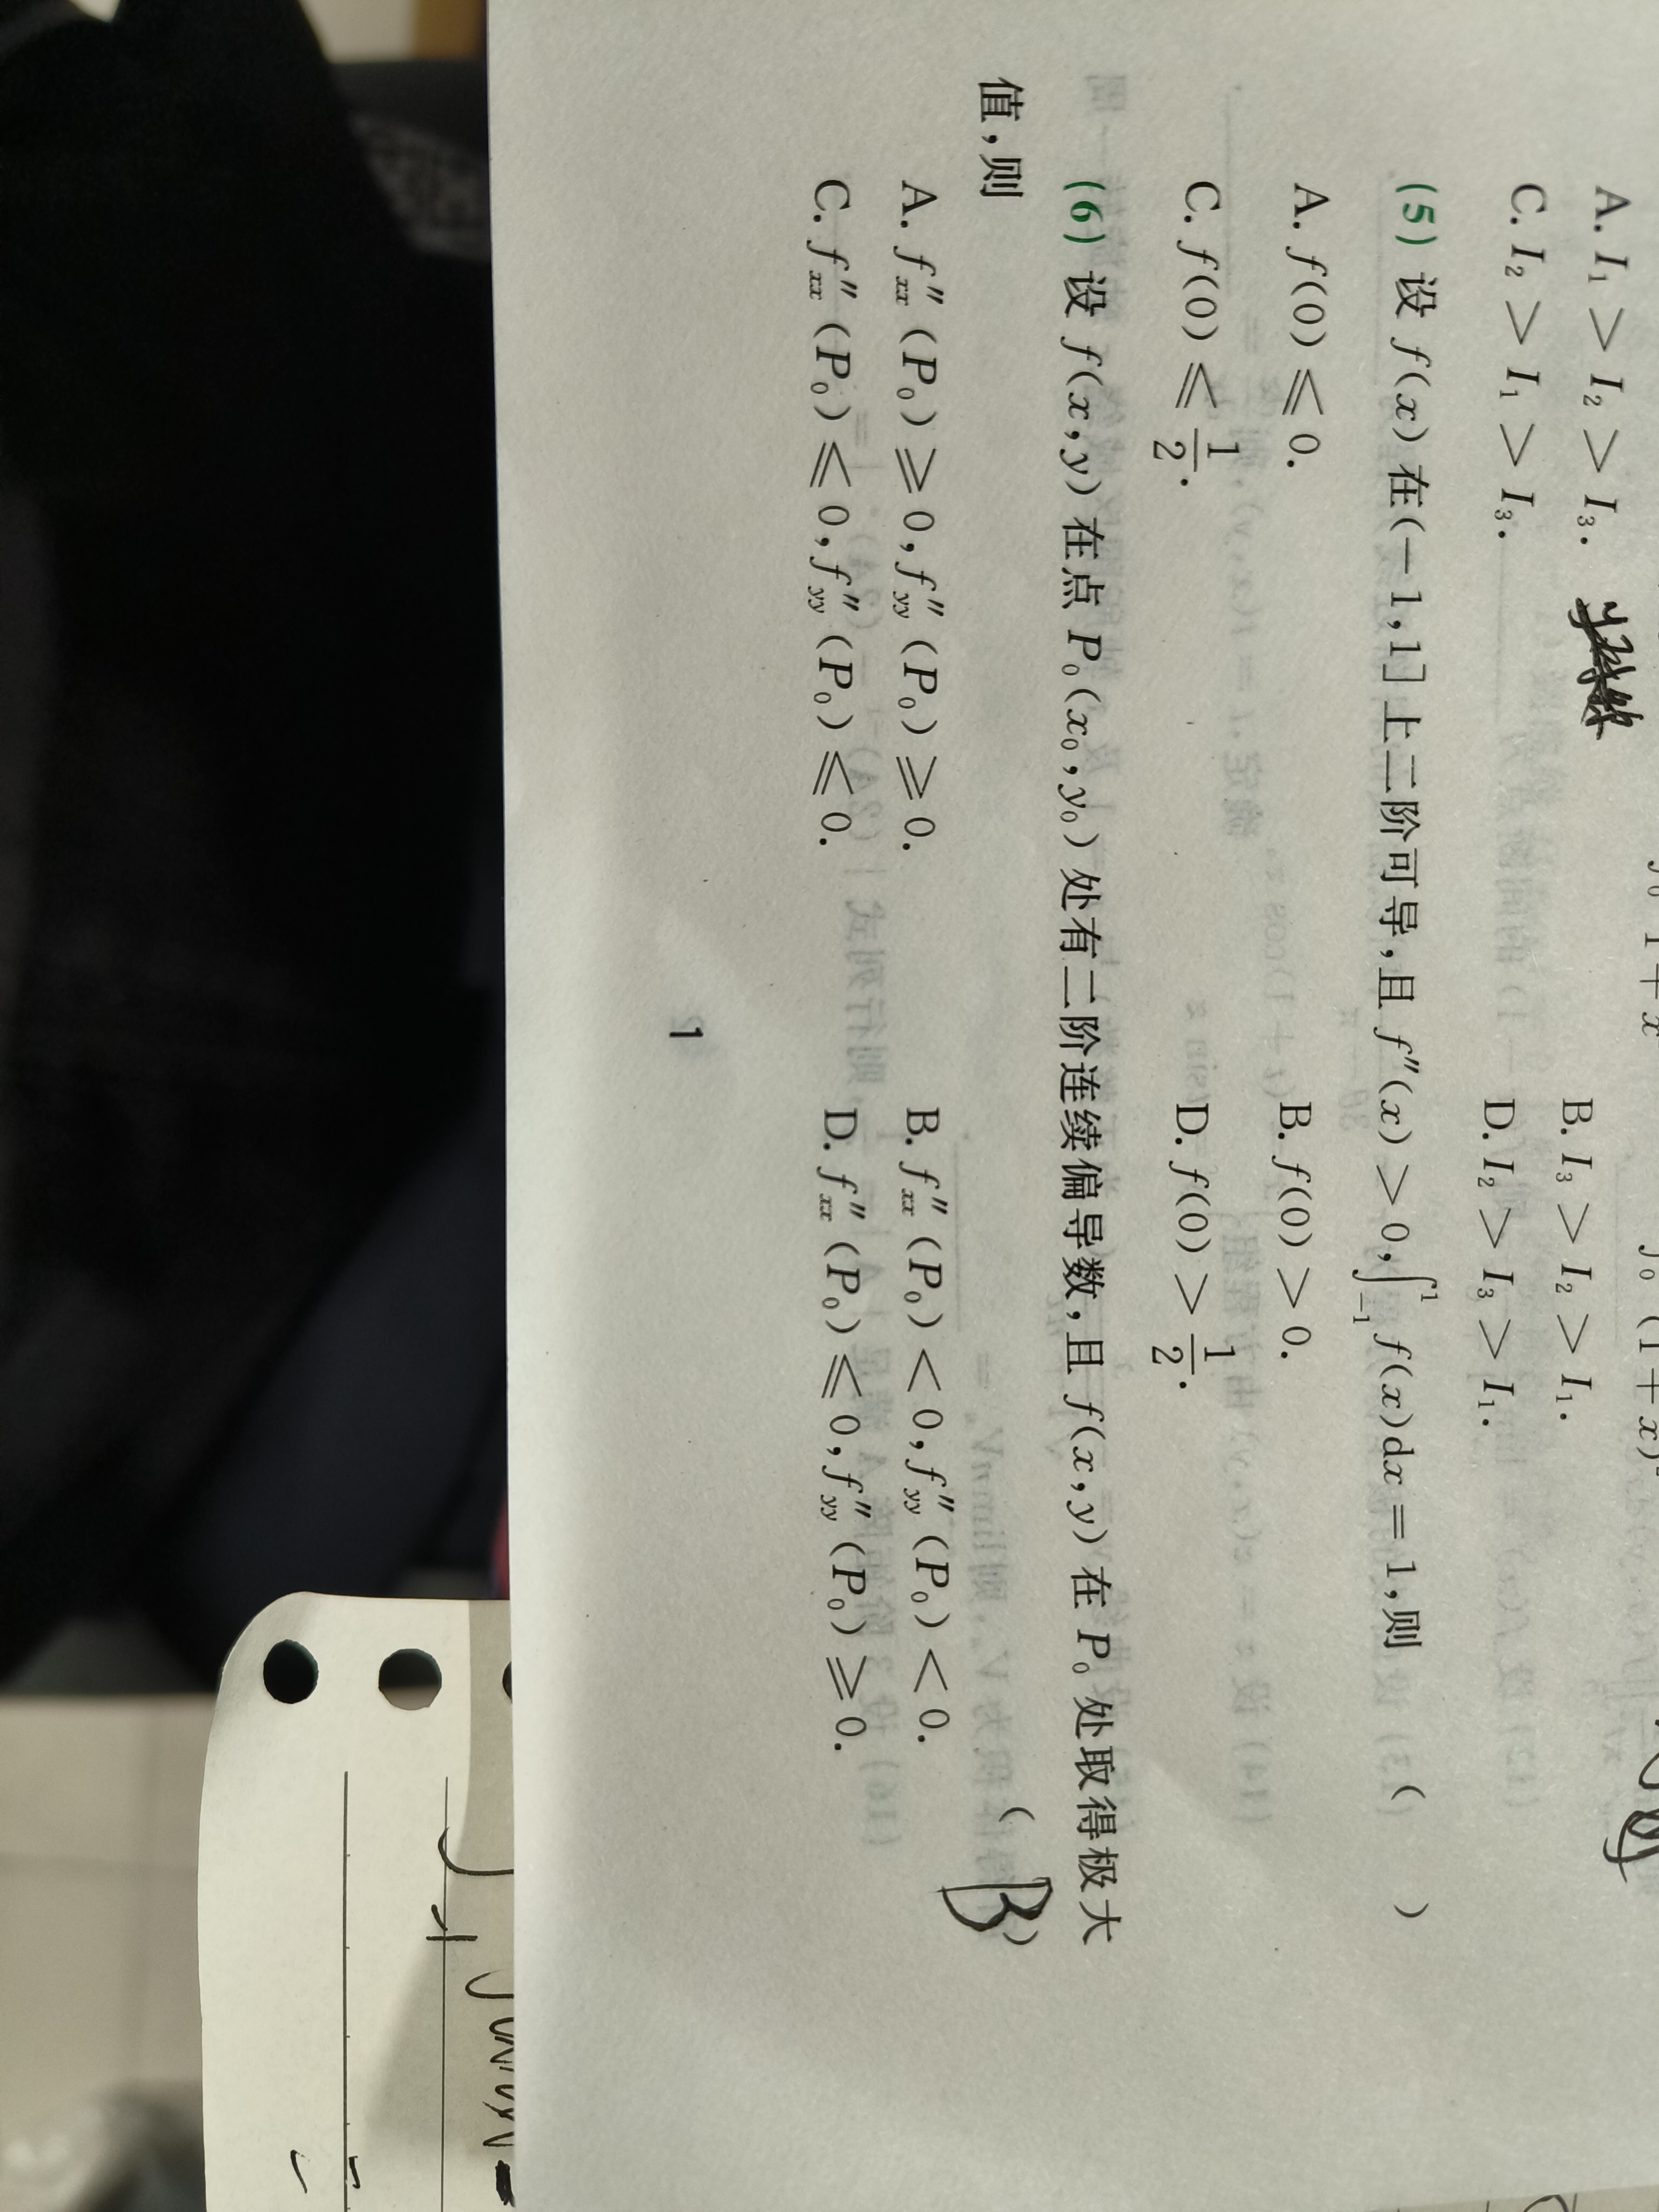 A. I₁ > I₂ > I₃. B. I₃ > I₂ > I₁.
C. I₂ > I₁ > I₃. D. I₂ > I₃ > I₁.
(5) 设 f(x) 在(-1,1]上二阶可导,且 f″(x) > 0,∫₋₁¹ f(x)dx = 1,则 ( )
A. f(0) ⩽ 0. B. f(0) > 0.
C. f(0) ⩽ 1/2. D. f(0) > 1/2.
(6) 设 f(x,y) 在点 P₀(x₀,y₀) 处有二阶连续偏导数,且 f(x,y) 在 P₀ 处取得极大
值,则 ( B )
A. f″xx(P₀) ⩾ 0, f″yy(P₀) ⩾ 0. B. f″xx(P₀) < 0, f″yy(P₀) < 0.
C. f″xx(P₀) ⩽ 0, f″yy(P₀) ⩽ 0. D. f″xx(P₀) ⩽ 0, f″yy(P₀) ⩾ 0.
1